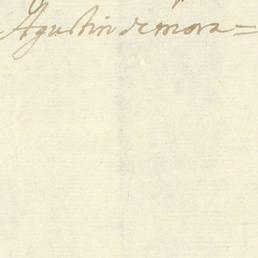 Agustin de mora =